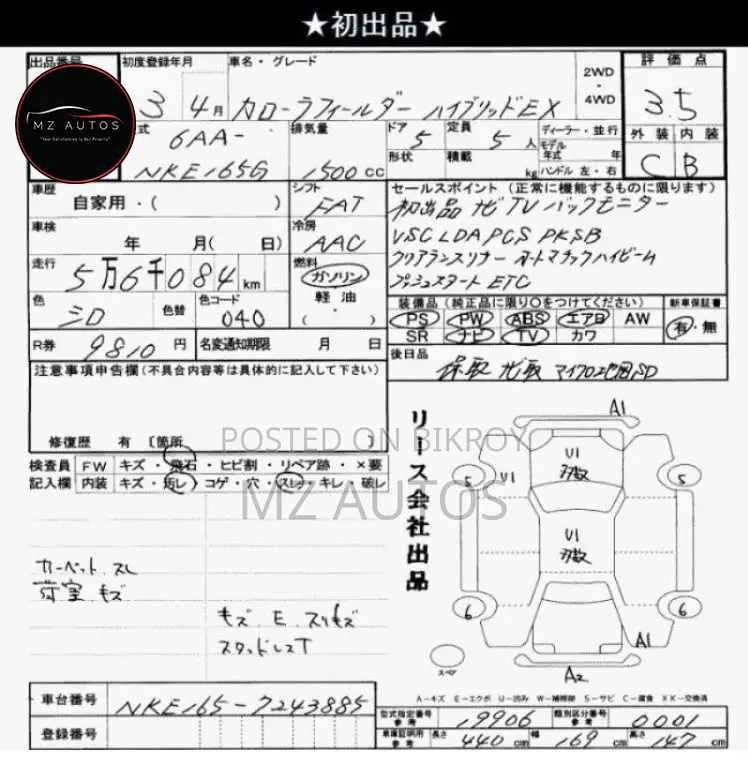 ★初出品★
出品番号
初度登録年月
車名・グレード
評価点
3 4月
カローラフィールダー ハイブリッドEX
2WD
・
4WD
3.5
MZ AUTOS
"Your Satisfaction is Our Priority"
式
6AA-
NKE165G
排気量
1500cc
ドア
5
定員
5人
ディーラー・並行
モデル年式 年
形状
積載 kg
ハンドル 左・右
外装 内装
C B
車歴
自家用・( )
シフト
FAT
セールスポイント(正常に機能するものに限ります)
初出品 ナビ TV バックモニター
VSC LDA PCS PKSB
クリアランスソナー オートマチックハイビーム
プッシュスタート ETC
車検
年 月( 日)
冷房
AAC
走行
5万6千084km
燃料
ガソリン
軽油
( ・ )
色
シロ
色替
色コード
040
装備品(純正品に限り○をつけてください)
新車保証書
PS PW ABS エアB AW
有・無
SR ナビ TV カワ
R券
9810円
名変通知期限 月 日
後日品
保取 ナビ取 マイクロ地図SD
注意事項申告欄(不具合内容等は具体的に記入して下さい)
修復歴 有 〔箇所 〕
POSTED ON BIKROY
MZ AUTOS
検査員
記入欄
FW キズ・飛石・ヒビ割・リペア跡・×要
内装 キズ・汚レ・コゲ・穴・スレ・キレ・破レ
カーペット スレ
荷室 キズ
キズ. E. スリキズ
スタッドレスT
リース会社出品
A1
U1
多数
U1
5
5
U1
多数
6
6
A1
スペア
A2
A-キズ E-エクボ U-凹み W-補修跡 S-サビ C-腐食 XX-交換済
車台番号
NKE165-7243885
型式指定番号
参考
19906
類別区分番号
参考
0001
登録番号
車庫証明用
参考
長さ
440cm
幅
169cm
高さ
147cm